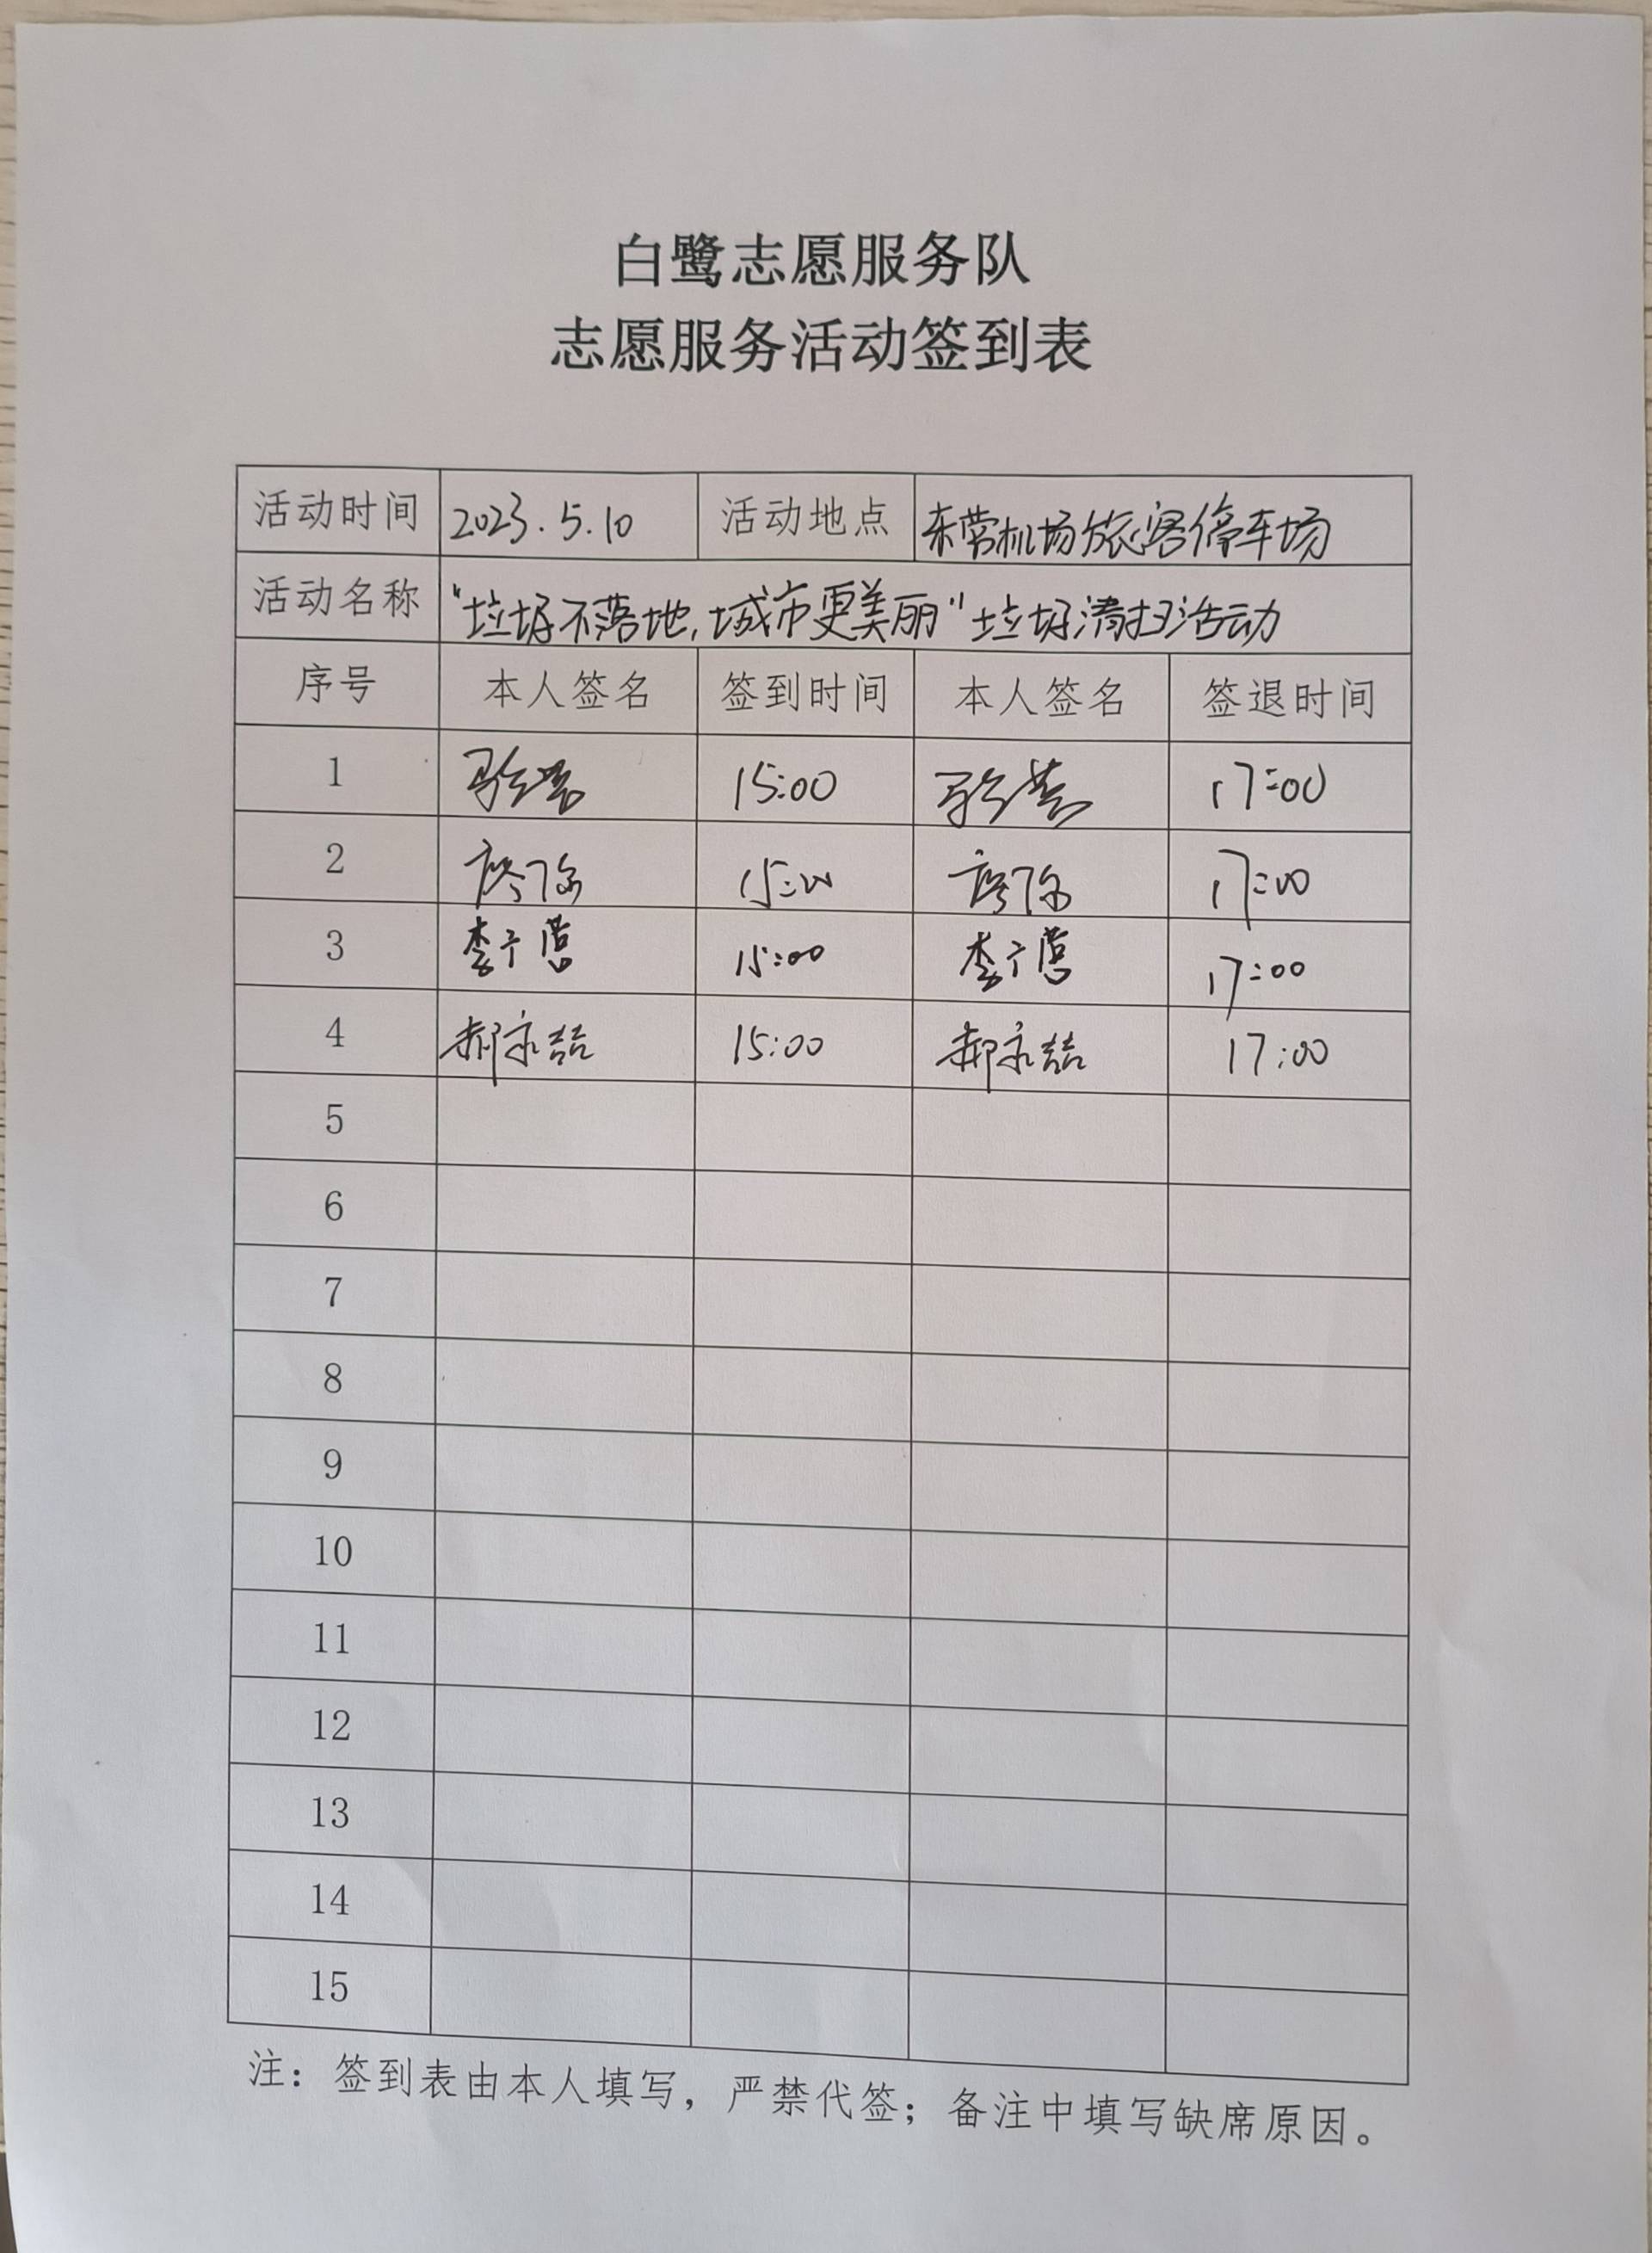 白鹭志愿服务队
志愿服务活动签到表
活动时间 2023.5.10 活动地点 东营机场旅客停车场
活动名称 "垃圾不落地,城市更美丽"垃圾清扫活动
序号 本人签名 签到时间 本人签名 签退时间
1 15:00 17:00
2 15:00 17:00
3 15:00 17:00
4 郝永喆 15:00 郝永喆 17:00
5
6
7
8
9
10
11
12
13
14
15
注：签到表由本人填写，严禁代签；备注中填写缺席原因。